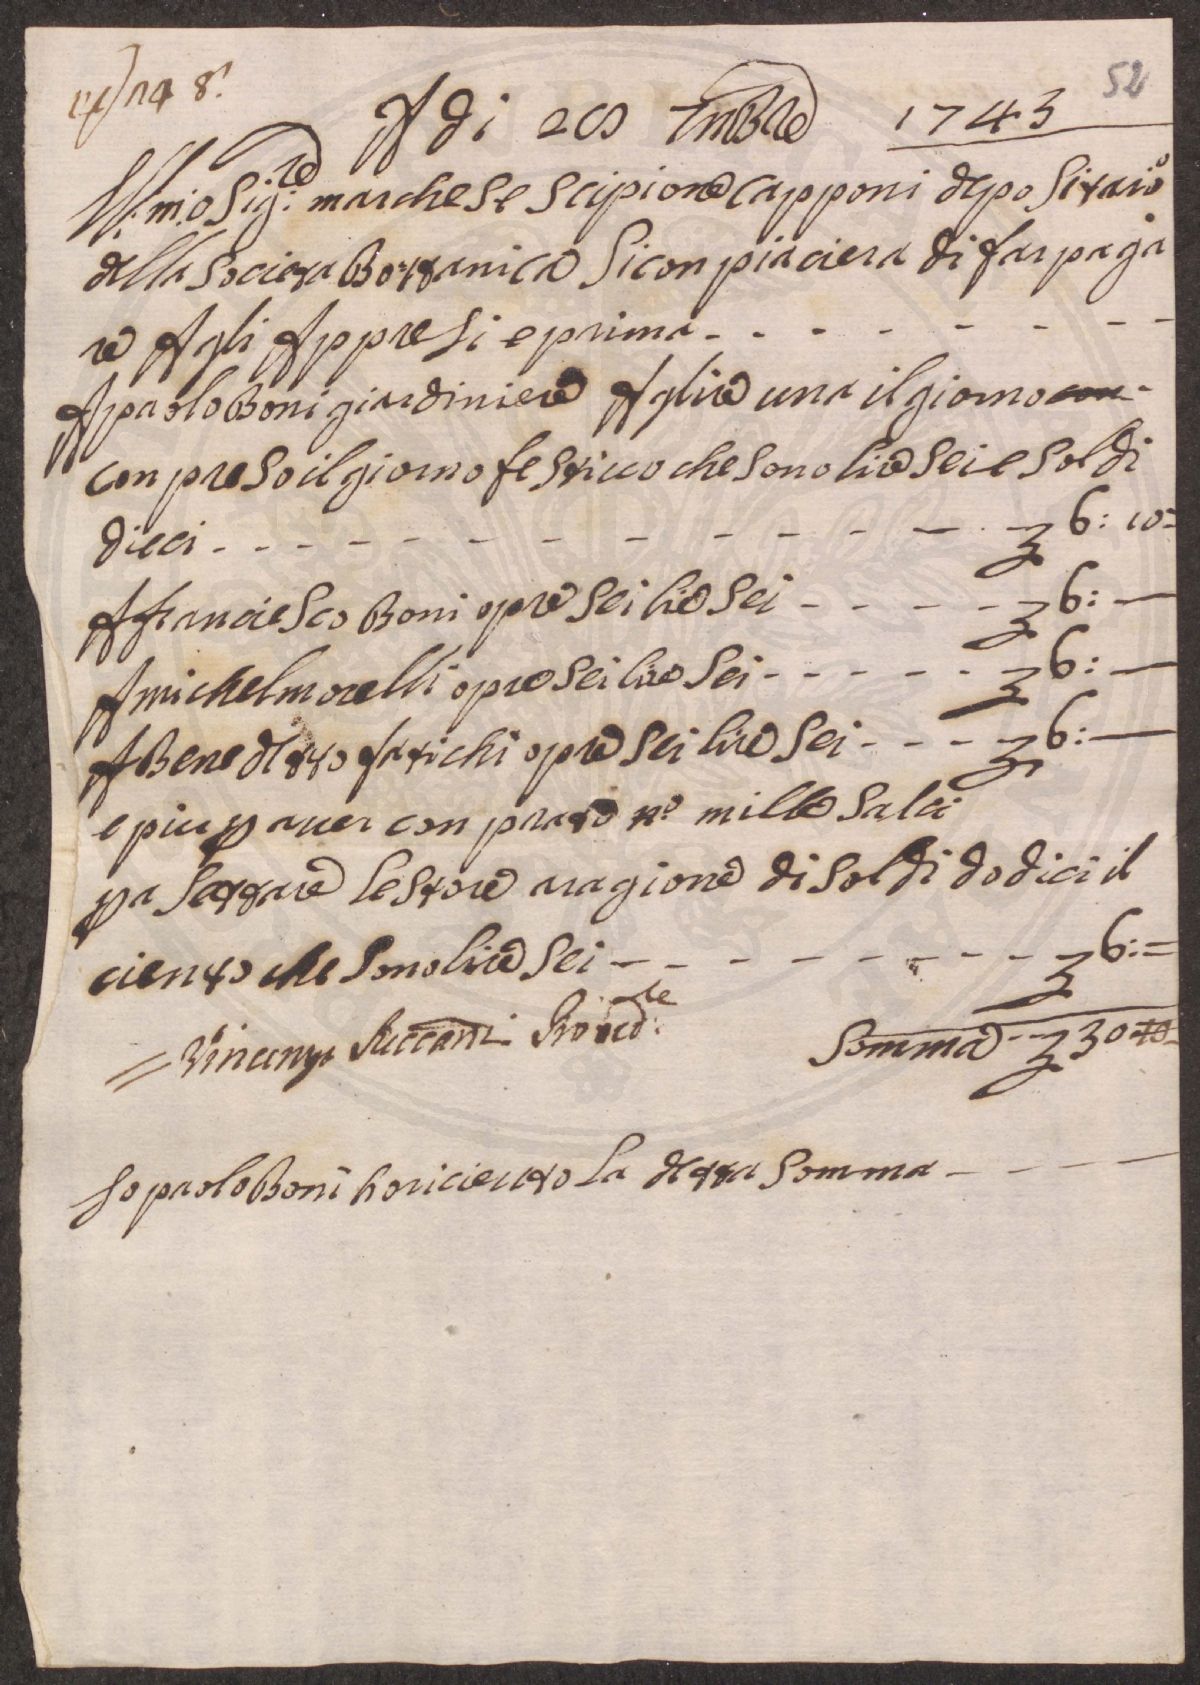 52
A di 20 9mbre 1743
Ill:mo Sig:re marchese Scipione Capponi depositario
della Societa Bottanica Si conpiaciera di far paga
re Agli Appresi e prima
A paolo Boni giardiniere A lire una il giorno con
conpreso il giorno festiuo che sono lire sei e soldi
dieci 6: 10
A franciesco Boni opre sei lire sei 6:
A michel morelli opre sei lire sei 6:
A Benedetto fatichi opre sei lire sei 6:
e piu p auer conprato no mille salci
pa legare le store a ragione di soldi dodici il
ciento che sono lire sei 6:
Somma 30 10
Io paolo Boni ho riciento la detta somma